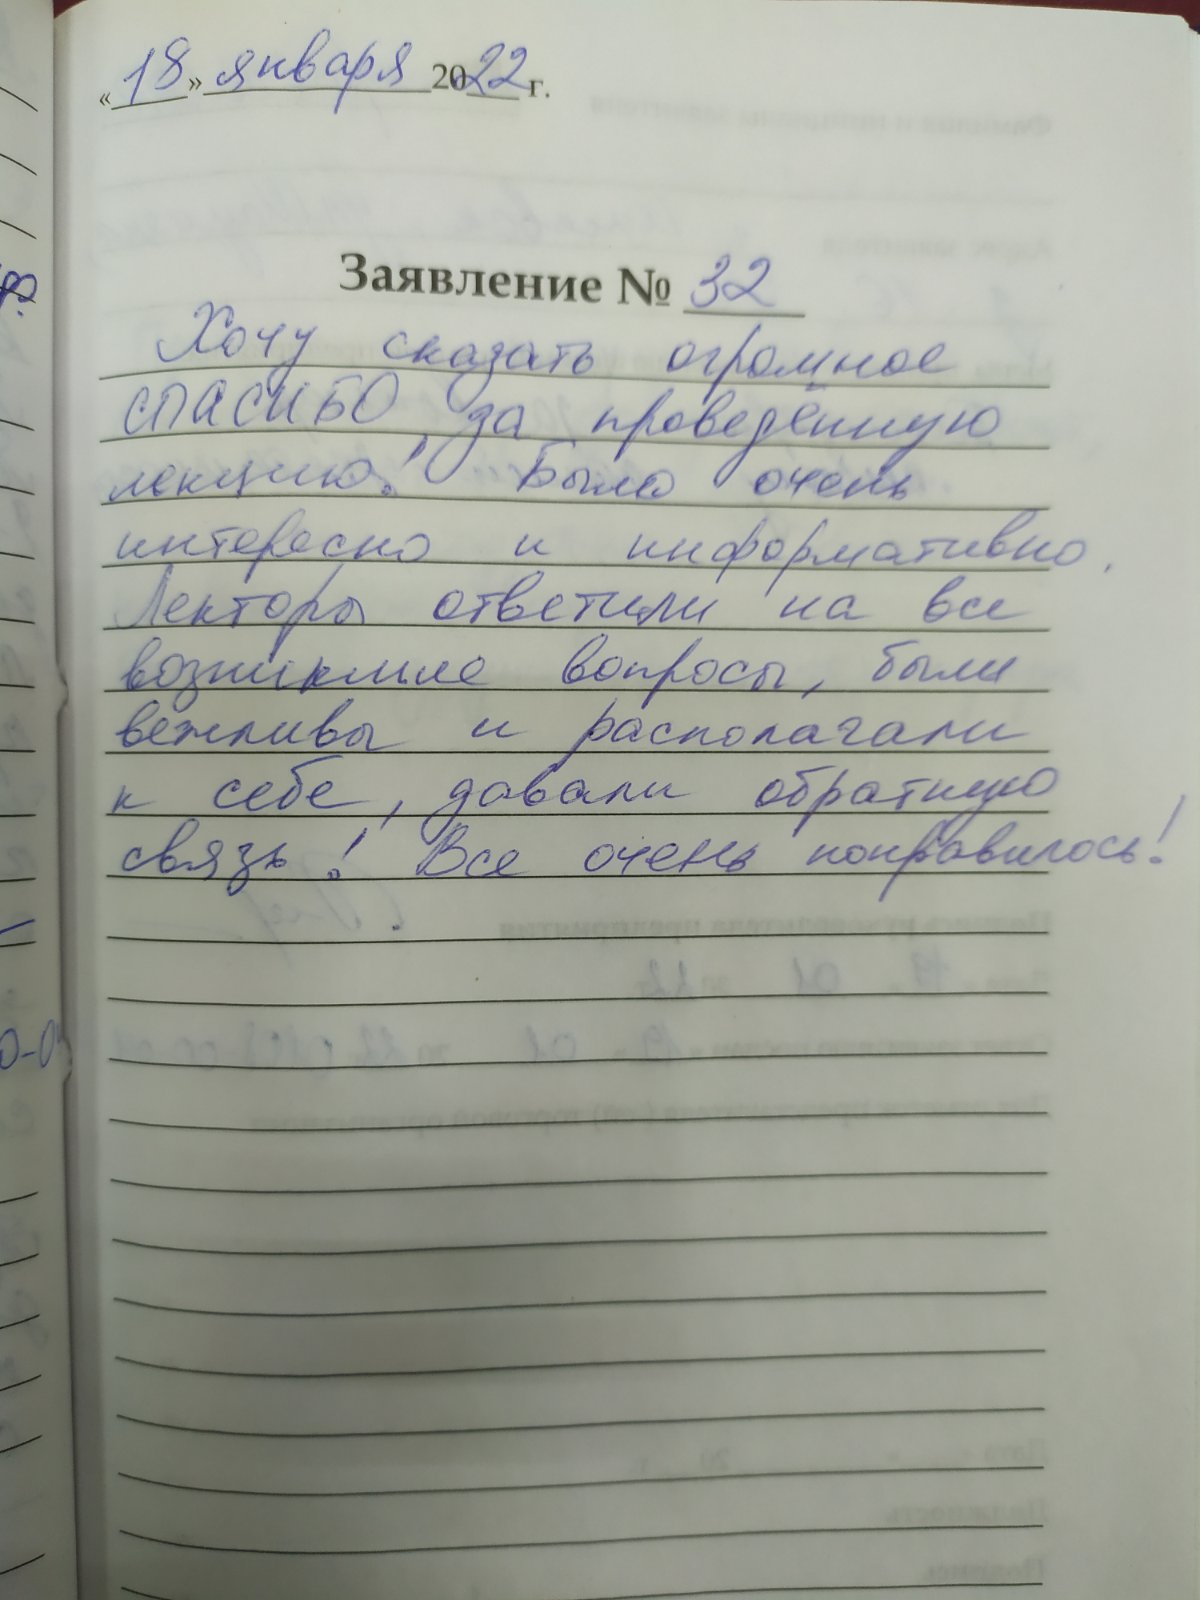 «18» января 2022 г.
Заявление № 32
Хочу сказать огромное
СПАСИБО за проведённую
лекцию! Было очень
интересно и информативно.
Лекторы ответили на все
возникшие вопросы, были
вежливы и располагали
к себе, давали обратную
связь! Все очень понравилось!